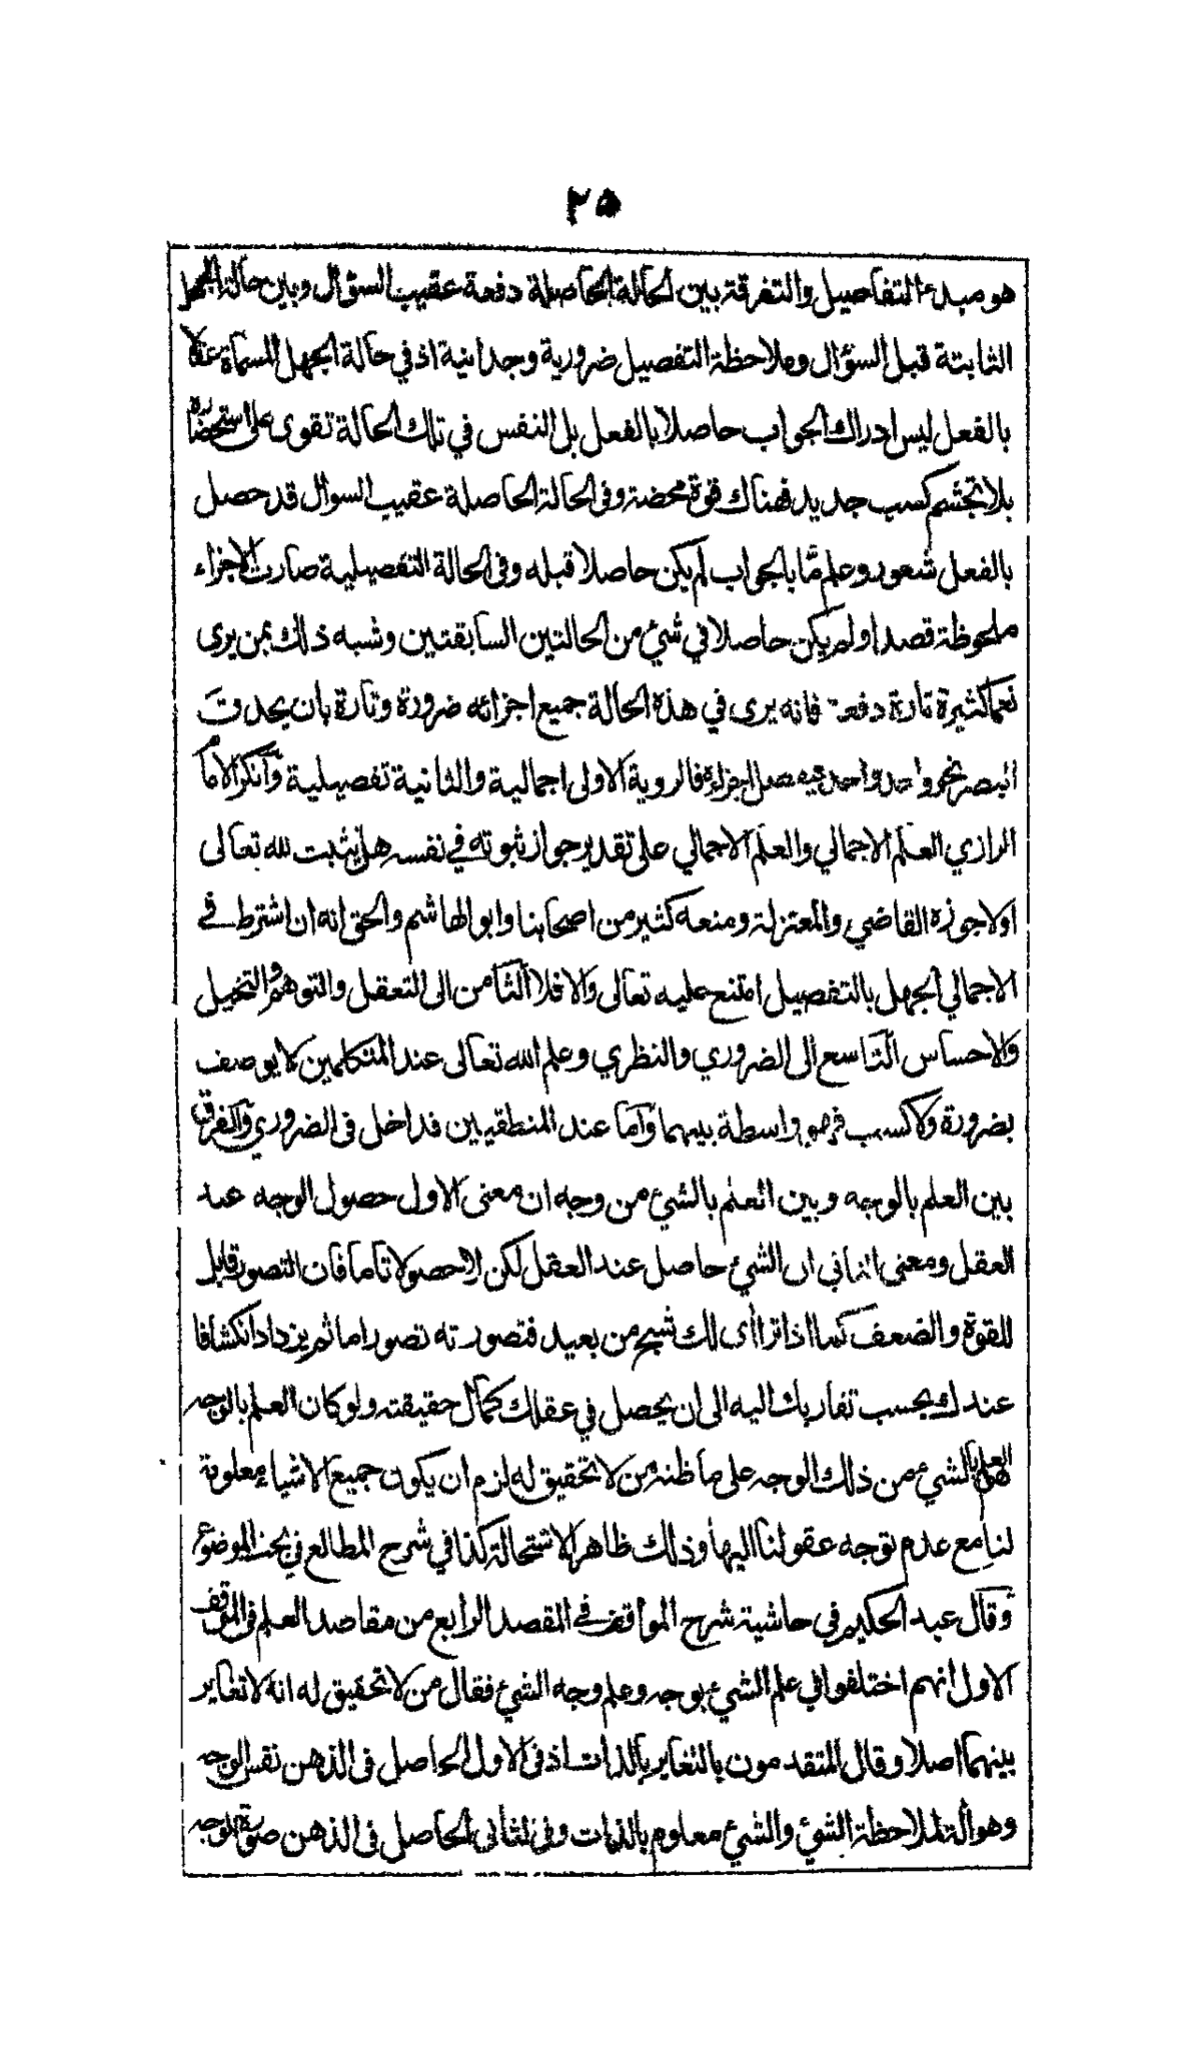 ٢٥
هو مبدء التفاصيل والتفرقة بين الحالة الحاصلة دفعة عقيب السؤال وبين حالة الجهل
الثابتة قبل السؤال وملاحظة التفصيل ضرورية وجدانية اذ في حالة الجهل المسماة عقلا
بالفعل ليس ادراك الجواب حاصلا بالفعل بل النفس في تلك الحالة تقوى على استحضاره
بلا تجشم كسب جديد فهناك قوة محضة وفى الحالة الحاصلة عقيب السوال قد حصل
بالفعل شعور وعلم مّا بالجواب لم يكن حاصلا قبله وفى الحالة التفصيلية صارت الاجزاء
ملحوظة قصدا ولم يكن حاصلا في شئ من الحالتين السابقتين وشبه ذلك بمن يرى
نعما كثيرة تارة دفعة فانه يرى في هذه الحالة جميع اجزائه ضرورة وتارة بان يحدق
البصر نحو واحد واحد فيفصل اجزاءه فالروية الاولى اجمالية والثانية تفصيلية وآنكر الامام
الرازي العلم الاجمالي والعلم الاجمالي على تقدير جواز ثبوته في نفسه هل يثبت لله تعالى
اولا جوزه القاضي والمعتزلة ومنعه كثير من اصحابنا وابو الهاشم والحق انه ان اشترط في
الاجمالي الجهل بالتفصيل امتنع عليه تعالى والا فلا الثامن الى التعقل والتوهم والتخيل
والاحساس التاسع الى الضروري والنظري وعلم الله تعالى عند المتكلمين لا يوصف
بضرورة ولا كسب فهو واسطة بينهما وآما عند المنطقيين فداخل فى الضروري والفرق
بين العلم بالوجه وبين العلم بالشئ من وجه ان معنى الاول حصول الوجه عند
العقل ومعنى الثاني ان الشئ حاصل عند العقل لكن لا حصولا تاما فان التصور قابل
للقوة والضعف كما اذا تراأى لك شبح من بعيد فتصورته تصورا ما ثم يزداد انكشافا
عندك بحسب تقاربك اليه الى ان يحصل في عقلك كمال حقيقته ولو كان العلم بالوجه
هو العلم بالشئ من ذلك الوجه على ما ظنه من لا تحقيق له لزم ان يكون جميع الاشياء معلومة
لنا مع عدم توجه عقولنا اليها وذلك ظاهر الاستحالة كذا في شرح المطالع في بحث الموضوع
وقال عبد الحكيم في حاشية شرح المواقف في المقصد الرابع من مقاصد العلم فى الموقف
الاول انهم اختلفوا في علم الشئ بوجه وعلم وجه الشئ فقال من لا تحقيق له انه لا تغاير
بينهما اصلا وقال المتقدمون بالتغاير بالذات اذ فى الاول الحاصل فى الذهن نفس الوجه
وهو الة لملاحظة الشئ والشئ معلوم بالذات وفى الثانى الحاصل فى الذهن صورة الوجه